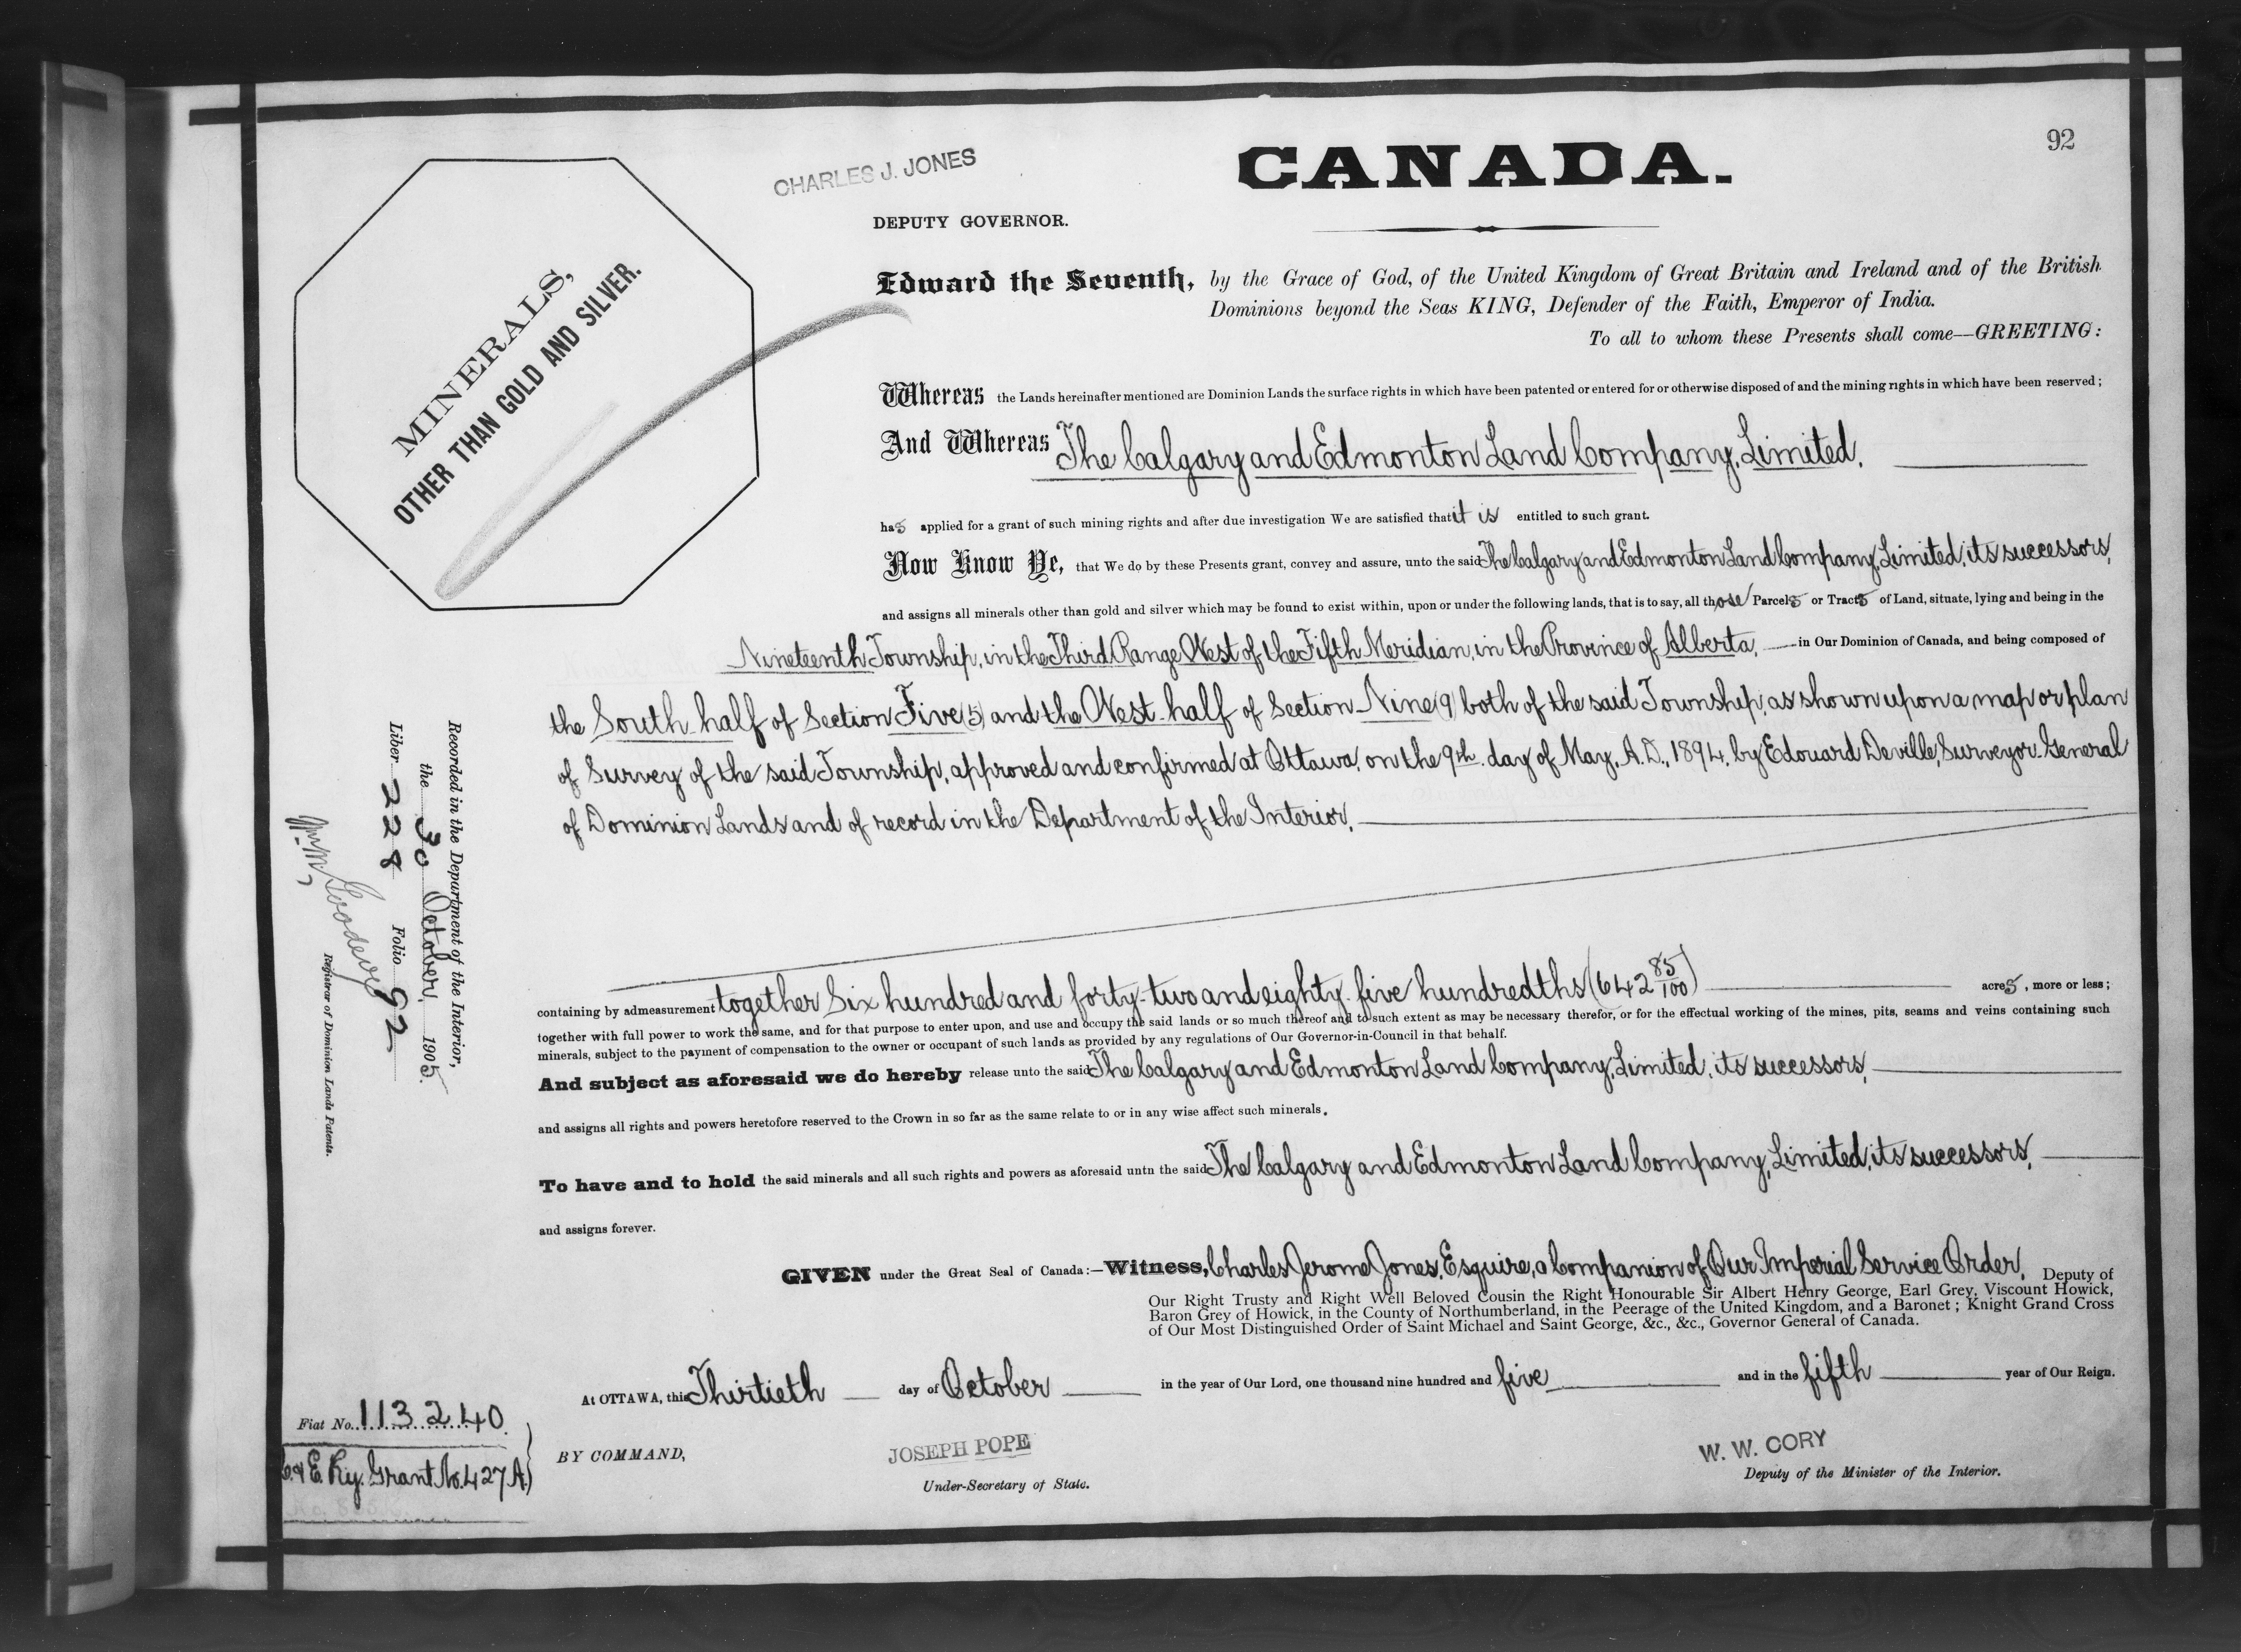 92
CHARLES J. JONES
CANADA.
DEPUTY GOVERNOR.
MINERALS,
OTHER THAN GOLD AND SILVER.
Edward the Seventh, by the Grace of God, of the United Kingdom of Great Britain and Ireland and of the British
Dominions beyond the Seas KING, Defender of the Faith, Emperor of India.
To all to whom these Presents shall come—GREETING:
Whereas the Lands hereinafter mentioned are Dominion Lands the surface rights in which have been patented or entered for or otherwise disposed of and the mining rights in which have been reserved;
And Whereas The Calgary and Edmonton Land Company, Limited,
has applied for a grant of such mining rights and after due investigation We are satisfied that it is entitled to such grant.
Now Know Ye, that We do by these Presents grant, convey and assure, unto the said The Calgary and Edmonton Land Company, Limited, its successors,
and assigns all minerals other than gold and silver which may be found to exist within, upon or under the following lands, that is to say, all those Parcels or Tracts of Land, situate, lying and being in the
Nineteenth Township, in the Third Range West of the Fifth Meridian, in the Province of Alberta, in Our Dominion of Canada, and being composed of
the South half of Section Five (5) and the West half of Section Nine (9) both of the said Township, as shown upon a map or plan
of Survey of the said Township, approved and confirmed at Ottawa, on the 9th. day of May, A.D., 1894, by Edouard Deville, Surveyor General
of Dominion Lands and of record in the Department of the Interior,
containing by admeasurement together Six hundred and forty-two and eighty-five hundredths (642 85/100) acres, more or less;
together with full power to work the same, and for that purpose to enter upon, and use and occupy the said lands or so much thereof and to such extent as may be necessary therefor, or for the effectual working of the mines, pits, seams and veins containing such
minerals, subject to the payment of compensation to the owner or occupant of such lands as provided by any regulations of Our Governor-in-Council in that behalf.
And subject as aforesaid we do hereby release unto the said The Calgary and Edmonton Land Company, Limited, its successors,
and assigns all rights and powers heretofore reserved to the Crown in so far as the same relate to or in any wise affect such minerals.
To have and to hold the said minerals and all such rights and powers as aforesaid untn the said The Calgary and Edmonton Land Company, Limited, its successors,
and assigns forever.
GIVEN under the Great Seal of Canada:—Witness, Charles Jerome Jones, Esquire, a Companion of Our Imperial Service Order, Deputy of
Our Right Trusty and Right Well Beloved Cousin the Right Honourable Sir Albert Henry George, Earl Grey, Viscount Howick,
Baron Grey of Howick, in the County of Northumberland, in the Peerage of the United Kingdom, and a Baronet; Knight Grand Cross
of Our Most Distinguished Order of Saint Michael and Saint George, &c., &c., Governor General of Canada.
At OTTAWA, this Thirtieth day of October in the year of Our Lord, one thousand nine hundred and five and in the fifth year of Our Reign.
BY COMMAND,
JOSEPH POPE
Under-Secretary of State.
W. W. CORY
Deputy of the Minister of the Interior.
Recorded in the Department of the Interior,
the 30 October, 1905.
Liber 228 Folio 92
Registrar of Dominion Lands Patents.
Fiat No. 113240.
C. & E. Ry. Grant No. 427 A.